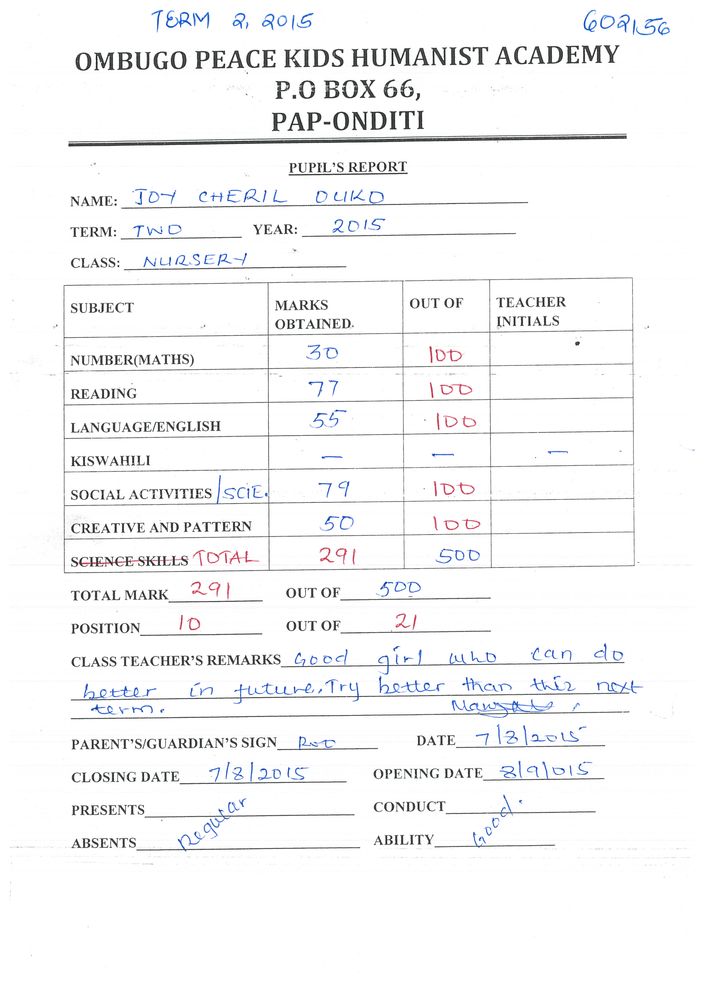 TERM 2, 2015
602156
OMBUGO PEACE KIDS HUMANIST ACADEMY
P.O BOX 66,
PAP-ONDITI
PUPIL'S REPORT
NAME: JOY CHERIL OUKO
TERM: TWO YEAR: 2015
CLASS: NURSERY
SUBJECT MARKS OBTAINED. OUT OF TEACHER INITIALS
NUMBER(MATHS) 30 100
READING 77 100
LANGUAGE/ENGLISH 55 100
KISWAHILI — — —
SOCIAL ACTIVITIES /SCIE. 79 100
CREATIVE AND PATTERN 50 100
SCIENCE SKILLS TOTAL 291 500
TOTAL MARK 291 OUT OF 500
POSITION 10 OUT OF 21
CLASS TEACHER'S REMARKS Good girl who can do
better in future. Try better than this next
term.
PARENT'S/GUARDIAN'S SIGN DATE 7/8/2015
CLOSING DATE 7/8/2015 OPENING DATE 8/9/015
PRESENTS CONDUCT
Regular Good.
ABSENTS ABILITY